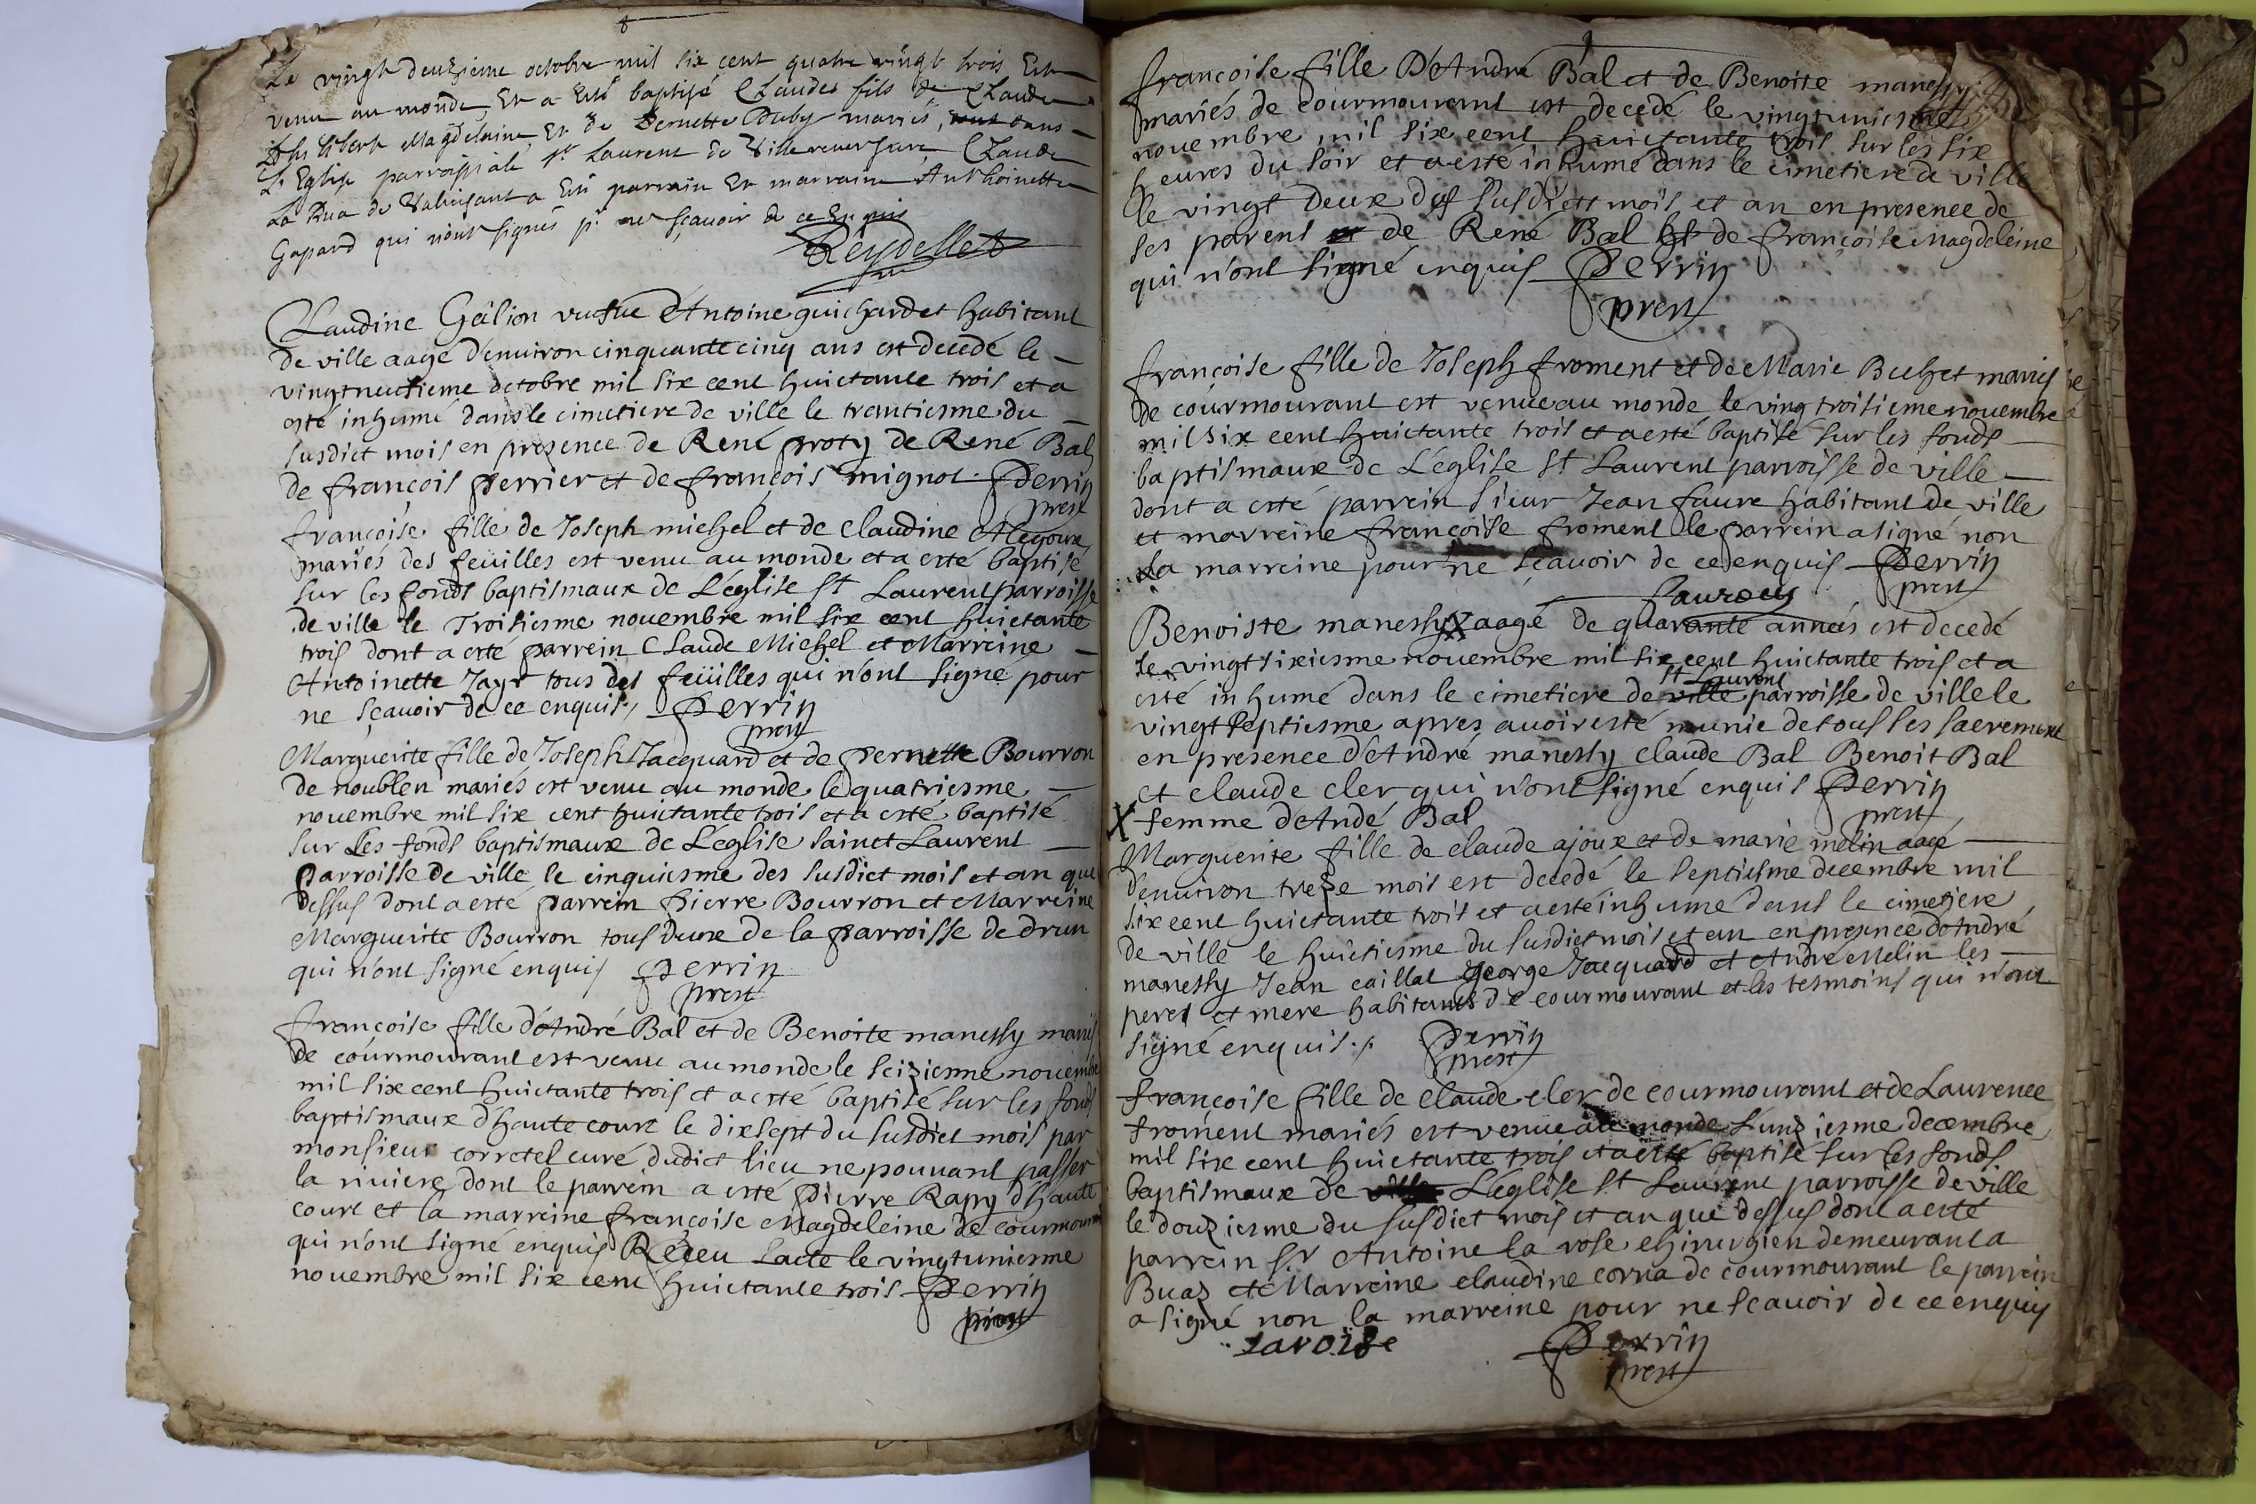 8
Le vingt deuzieme octobre mil six cent quatre vingt trois Est
venu au monde Et a Esté baptisé Claudes fils de Claude
Magdelaine Et de Pernette Duby mariés, dans
L'Eglise parroissiale st Laurent de Ville Claude
La Rua de a Esté parrain Et marraine Anthoinette
Gapard qui n'ont signés pr ne sçavoir de ce Enquis
Reydellet
Claudine Gâlion vefue d'Antoine guichardet habitant
de ville aagé d'enuiron cinquante cinq ans est decedé le
vingtneufieme octobre mil six cent huictante trois et a
esté inhumé dans le cimetiere de ville le trantiesme du
susdict mois en presence de René proty de René Bal
de françois perrier et de françois mignot. Perrin
prest
françoise fille de Joseph michel et de claudine
mariés des feüilles est venu au monde et a esté baptisé
sur les fonds baptismaux de L'église st Laurent parroisse
de ville le Troisiesme nouembre mil six cent huictante
trois dont a esté parrein Claude Michel et Marreine
Antoinette Jayr tous des feüilles qui n'ont signé pour
ne sçavoir de ce enquis./. Perrin
prest
Marguerite fille de Joseph Jacquard et de pernette Bourron
de noublen mariés est venu au monde le quatriesme
nouembre mil six cent huictante trois et a esté baptisé
sur Les fonds baptismaux de L'église sainct Laurent
parroisse de ville le cinquiesme des susdict mois et an que
dessus dont a esté parrein pierre Bourron et Marreine
Marguerite Bourron tous deux de la parroisse de drun
qui n'ont signé enquis Perrin
prest
françoise fille d'André Bal et de Benoite manessy mariés
de courmourant est venu au monde le seizieme nouembre
mil six cent huictante trois et a esté baptisé sur les fonds
baptismaux d'haute court le dixsept du susdict mois par
monsieur corretel curé dudict lieu ne pouuant passer
la riuiere dont le parrein a esté pierre Rapy d'haute
court et la marreine françoise Magdeleine de courmourant
qui n'ont signé enquis Réceu Lacte le vingtuniesme
nouembre mil six cent huictante trois Perrin
prest
9
françoise fille D'André Bal et de Benoite manessy
mariés de courmourant est decedé le vingtuniesme
nouembre mil six cent huictante trois sur les six
heures du soir et a esté inhumé dans le cimetiere de ville
le vingt deux des susdicts mois et an en presence de
ses parens et de René Bal et de françoise Magdeleine
qui n'ont signé enquis Perrin
prest
françoise fille de Joseph froment et de Marie Buchet mariés
de courmourant est venue au monde le ving troisieme nouembre
mil six cent huictante trois et a esté baptisé sur les fonds
baptismaux de L'église st Laurent parroisse de ville
dont a esté parrein sieur Jean faure habitant de ville
et marreine françoise froment le parrein a signé non
La marreine pour ne sçavoir de ce enquis Perrin
prest
Benoiste manessy X aagé de quarante années est decedé
le vingtsixiesme nouembre mil six cent huictante trois et a
st Laurent
esté inhumé dans le cimetiere de ville parroisse de ville le
vingt septiesme apres auoir esté munie de tous les sacrement
en presence d'André manessy claude Bal Benoit Bal
et claude cler qui n'ont signé enquis Perrin
prest
X femme d'Andé Bal
Marguerite fille de claude ajoux et de marie melin aagé
d'enuiron treze mois est decedé le septiesme decembre mil
six cent huictante trois et a esté inhumé dans le cimetiere
de ville le huictiesme du susdict mois et an en presence d'André
manessy Jean caillat george Jacquard et André Melin les
peres et mere habitants de courmourant et les tesmoins qui n'ont
signé enquis./. Perrin
prest
françoise fille de claude cler de courmourant et de Laurence
froment mariés est venue au monde L'unziesme decembre
mil six cent huictante trois et a esté baptisé sur les fonds
baptismaux de ville L'église st Laurent parroisse de ville
le douziesme du susdict mois et an que dessus dont a esté
parrein sr Antoine la rose chirurgien demeurant a
Buaz et Marreine claudine corna de courmourant le parrein
a signé non la marreine pour ne sçavoir de ce enquis
Perrin
prest